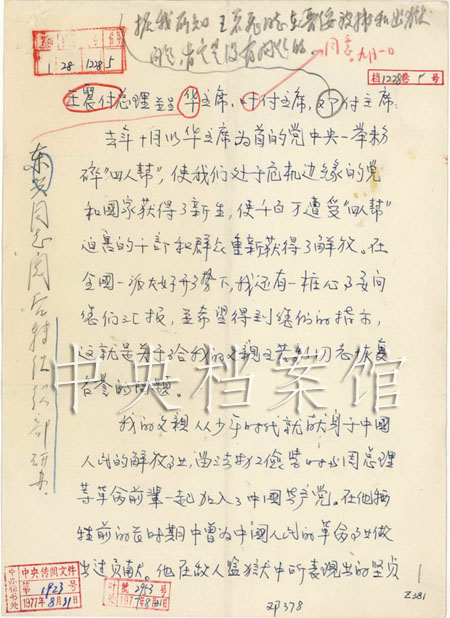 据我所知
1·28 1228·5
档1228卷5号
王震付总理并呈华主席,叶付主席,邓付主席:
去年十月以华主席为首的党中央一举粉
碎"四人帮",使我们处于危机边缘的党
和国家获得了新生,使千百万遭受"四人帮"
迫害的干部和群众重新获得了解放。在
全国一派大好形势下,我还有一桩心事要向
您们汇报,并希望得到您们的指示,
这就是关于给我的父亲王若飞同志恢复
名誉的问题。
我的父亲从少年时代就献身于中国
人民的解放事业,留法勤工俭学时与周总理
等革命前辈一起加入了中国共产党。在他牺
牲前的长时期中曾为中国人民的革命事业做
出过贡献。他在敌人监狱中所表现出的坚贞
中央档案馆
东兴同志阅后转组织部研办
中央传阅文件
第1923号
1977年8月31日
邓378
Z381
1